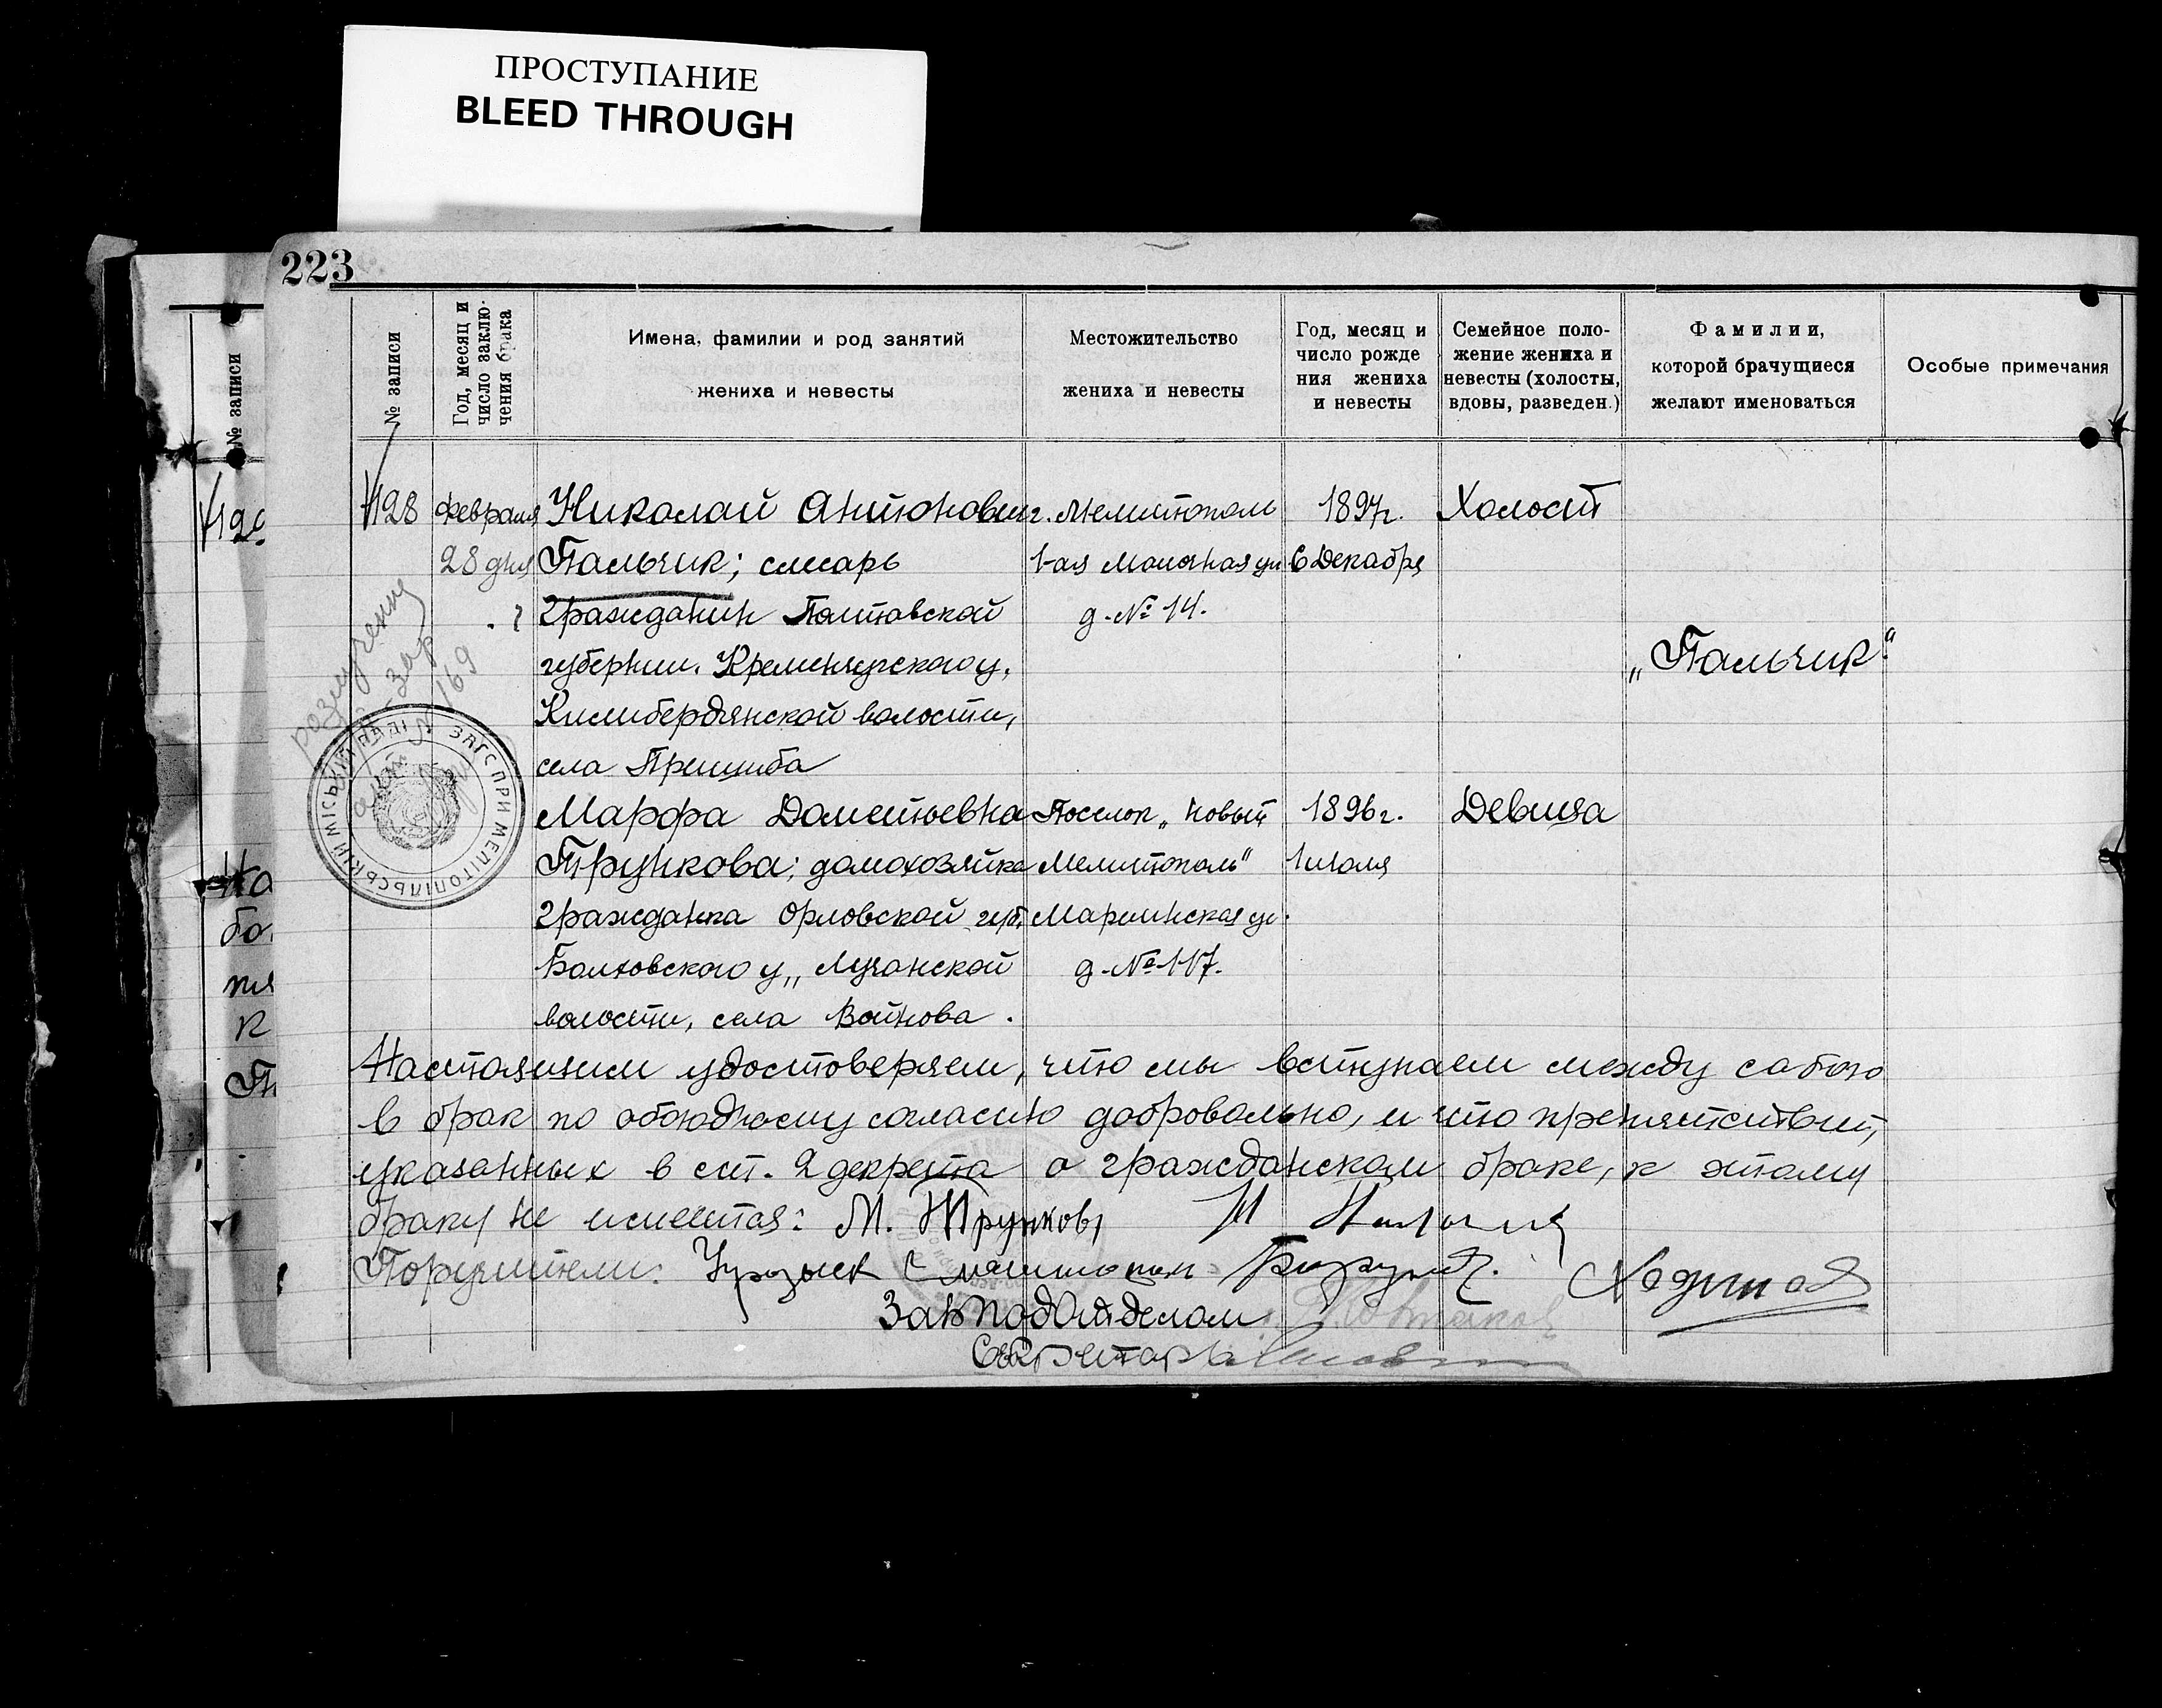 ПРОСТУПАНИЕ
BLEED THROUGH
223
№ записи
№ записи
Год, месяц и число заключения брака
Имена, фамилии и род занятий
жениха и невесты
Местожительство
жениха и невесты
Год, месяц и
число рожде
ния жениха
и невесты
Семейное поло-
жение жениха и
невесты (холосты,
вдовы, разведен.)
Фамилии,
которой брачущиеся
желают именоваться
Особые примечания
128 Февраля Николай Антонович г. Мелитополь 1897г. Холост
28 дня Пальчик; слесарь 1-ая Молочная ул 6 Декабря
гражданин Полтавской д. № 14.
губернии. Кременчугского у,
„Пальчик“
Килибердянской волости,
села Пришиба
Марфа Даметьевна Поселок „Новый 1896г. Девица
Трункова; домохозяйка Мелитополь" 1 июля
гражданка Орловской губ. Мариинская ул.
Болховского у,, Лучанской д. № 117.
волости, села Войнова.
Настоящим удостоверяем, что мы вступаем между сабою
в брак по обоюдному согласию добровольно, и что препятствий,
указанных в ст. 2 декрета о гражданском браке, к этому
браку не имеется: М. Трункова Н
Поручители:
ЗавПодОтделом
Секретарь
МЕЛІТОПІЛЬСЬКІЙ МІСЬКРАДІ ЗАГС ПРИ